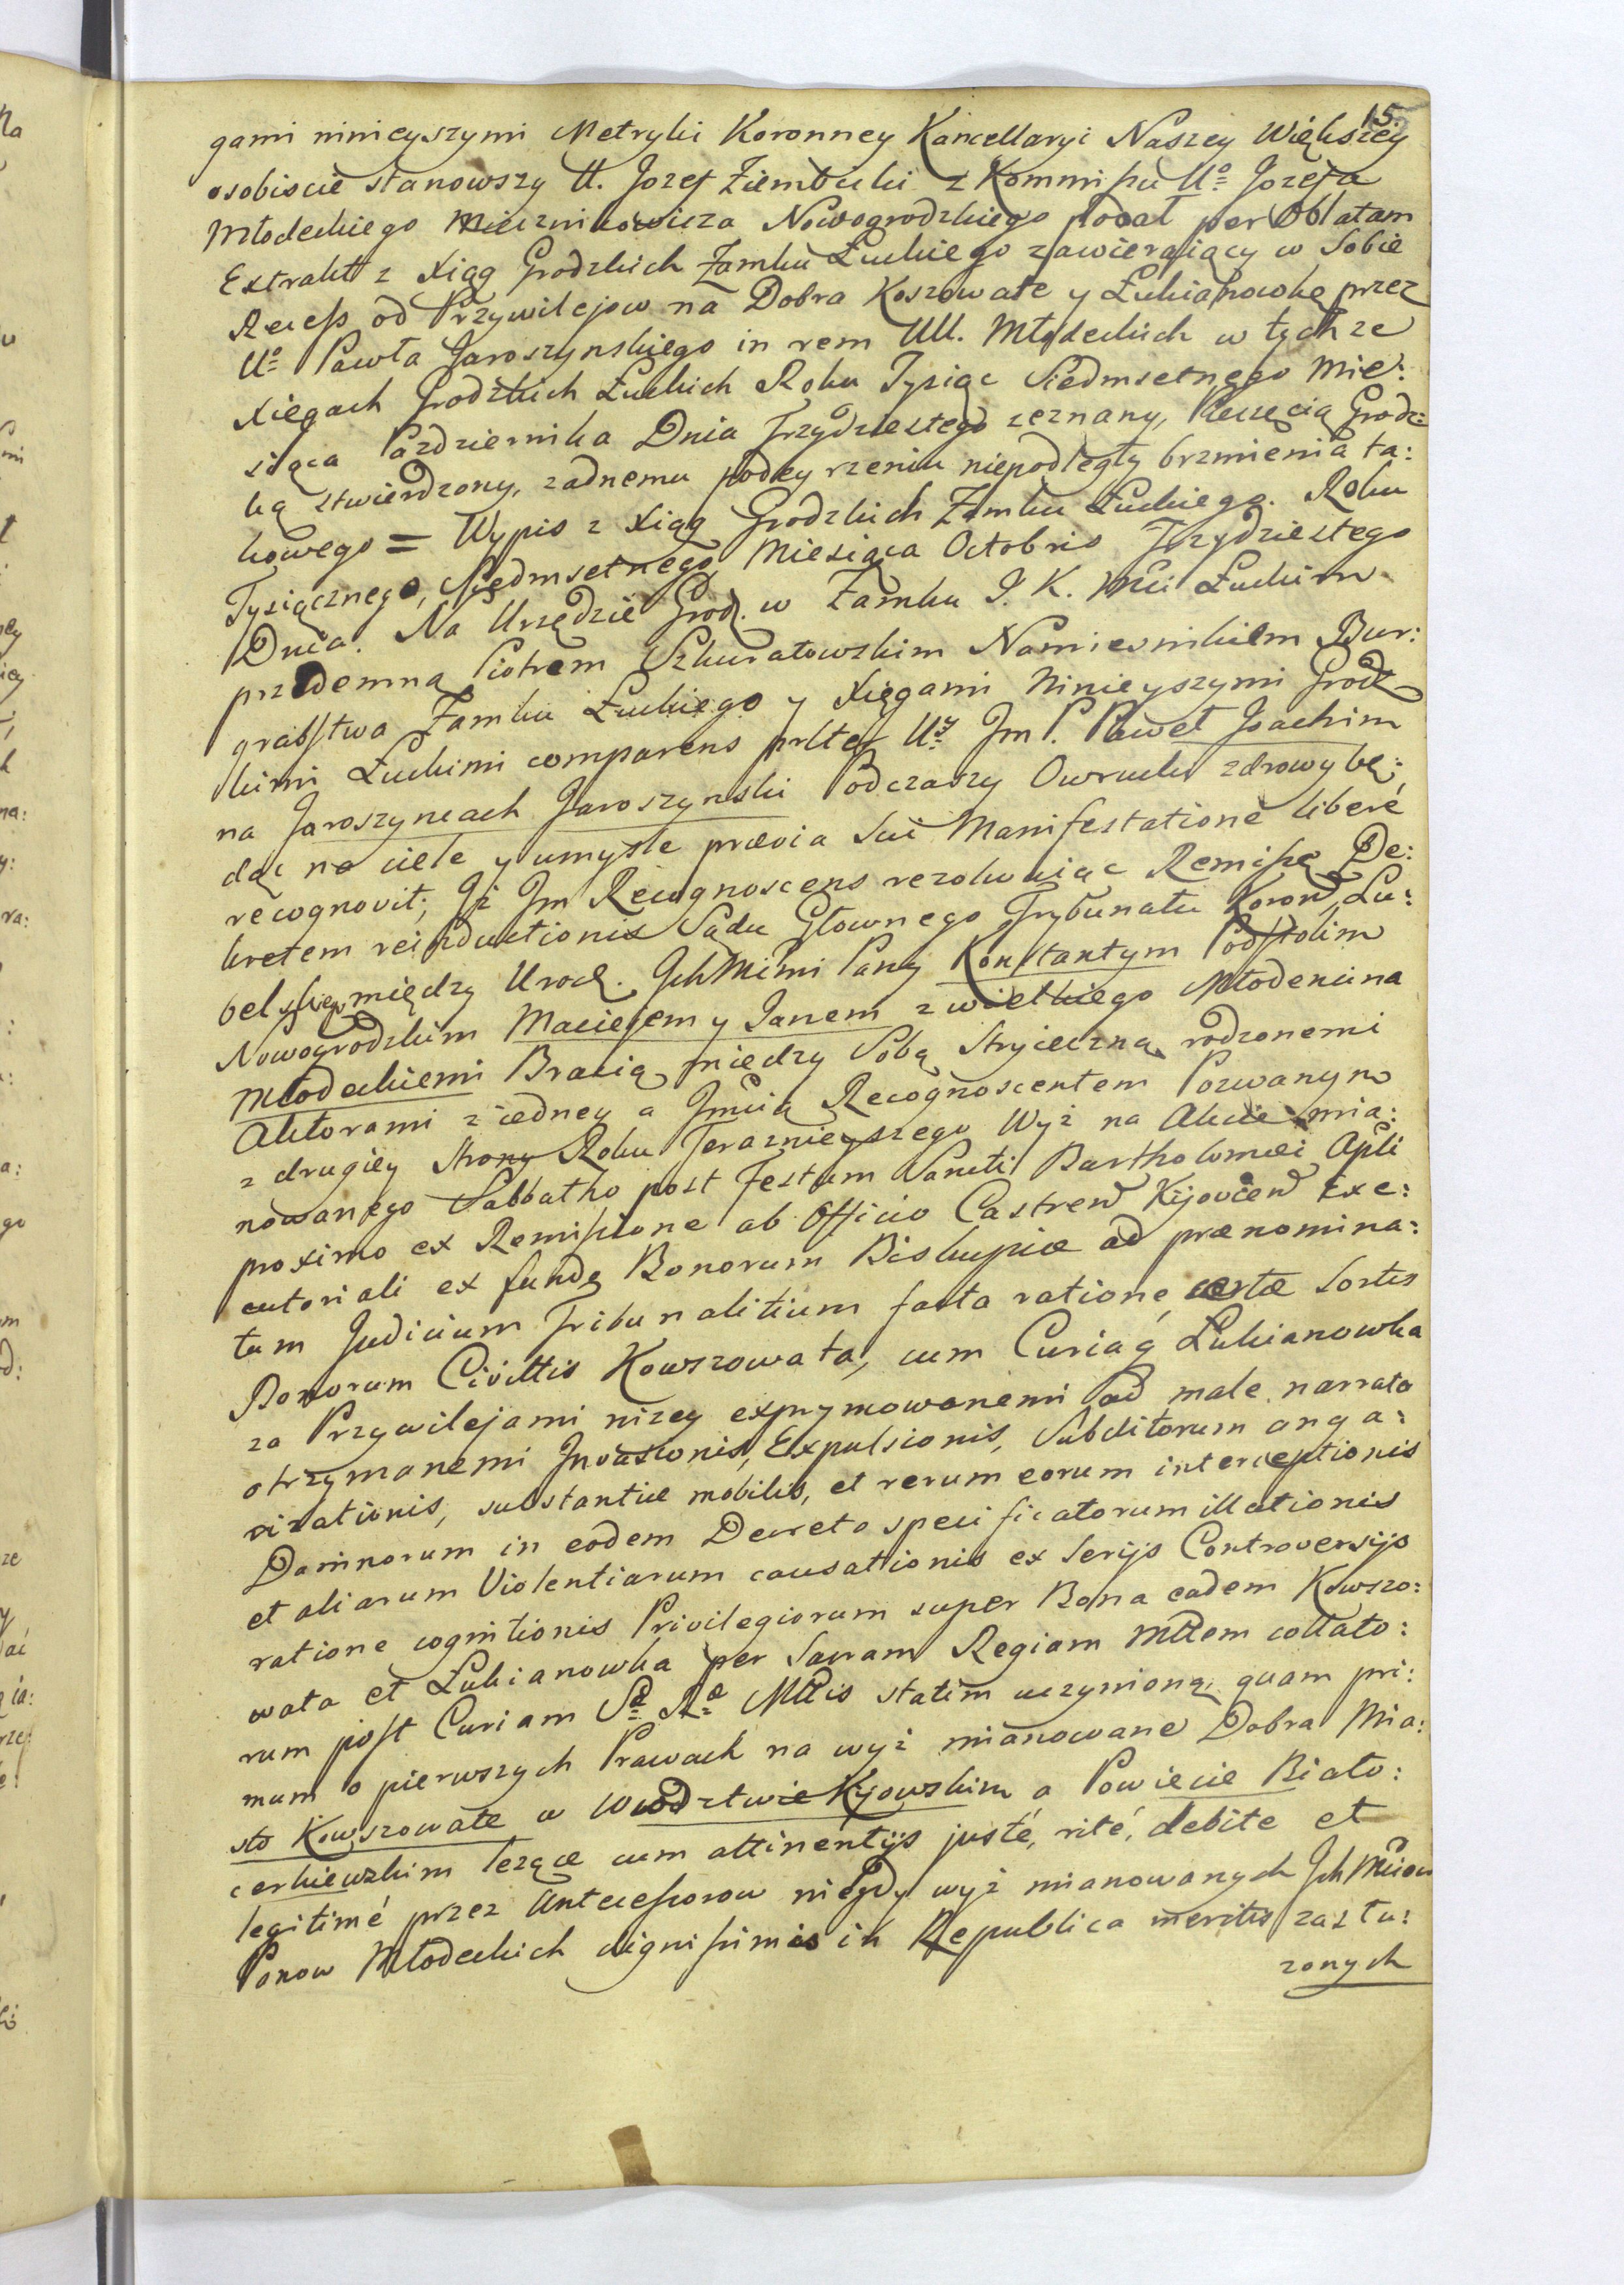 15.
gami ninieyszymi Metryki Koronney Kancellaryi Naszey Większey
osobiscie stanowszy U. Jozef Ziembicki z Kommissu Uo Jozefa
Młodeckiego Miecznikowicza Nowogrodzkiego podał per Oblatam
Extrakt z Xiąg Grodzkich Zamku Łuckiego zawieraiący w Sobie
Recess od Przywilejow na Dobra Koszowate y Łukianowkę przez
Uo Pawła Jaroszynskiego in rem UU. Młodeckich w tychze
Xięgach Grodzkich Łuckich Roku Tysiąc Siedmsetnego Mie:
siąca Pazdziernika Dnia Trzydziestego zeznany, Pieczęcią Grodz:
ką stwierdzony, zadnemu podeyrzeniu niepodległy brzmienia ta:
kowego = Wypis z Xiąg Grodzkich Zamku Łuckiego. Roku
Tysiącznego, Siedmsetnego Miesiąca Octobris Trzydziestego
Dnia. Na Urzędzie Grod. w Zamku J. K. Mci Łuckim
przedemną Piotrem Szkuratowskim Namiesnikiem Bur:
grabstwa Zamku Łuckiego y Xięgami Ninieyszymi Grodz
kimi Łuckimi comparens prlter Ury Jm P. Paweł Joachim
na Jaroszyncach Jaroszynski Podczaszy Owrucki zdrowy bę:
dąc na ciele y umysle prævia Sui Manifestatione liberé
recognovit; Iż Jm Recognoscens rezolwuiąc Remissę De:
kretem reinductionis Sądu Głownego Trybunału Koron. Lu:
belskiego między Urodz. Ichmimi Pany Konstantym Podstolim
Nowogrodzkim Maciejem y Janem z wielkiego Młodenina
Młodeckiemi Bracią między Sobą Stryieczną rodzonemi
Aktorami z iedney a Jmcią Recognoscentem Pozwanym
z drugiey Strony Roku Teraznieyszego Wyż na Akcie mia:
nowanego Sabbatho post Festum Sancti Bartholomæi Apli
proximo ex Remissione ab Officio Castren Kijovien Exe:
cutoriali ex fundo Bonorum Biskupice ad prænomina:
tum Judicium Tribunalitium facta ratione certæ Sortis
Bonorum Civittis Kowszowata, cum Curia é Łukianowka
za Przywilejami nizey exprymowanemi ad male narrata
otrzymanemi Invasionis, Expulsionis, Subditorum anga:
rizationis, substantiæ mobilis, et rerum eorum interceptionis
Damnorum in eodem Decreto specificatorum illationis
et aliarum Violentiarum causationis ex Serijs Controversijs
ratione cognitionis Privilegiorum super Bona eadem Kowszo:
wata et Łukianowka per Sacram Regiam Mttem collato:
rum post Curiam Sæ Ræ Mttis statim uczynioną, quam pri:
mum o pierwszych Prawach na wyż mianowane Dobra Mia:
sto Kowszowate w Wwodztwie Kijowskim a Powiecie Biało:
cerkiewskim lezące cum attinentijs justé, rité, debite et
legitimé przez Antecessorow niegdy wyż mianowanych Ich Mciow
Panow Młodeckich dignissimis in Republica meritis zasłu:
zonych